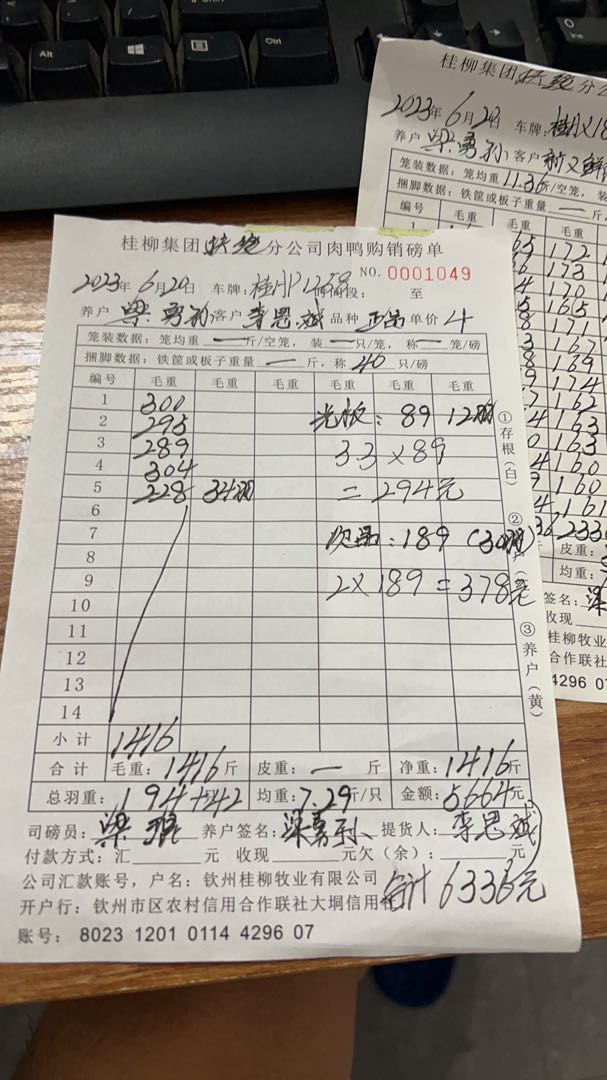 Alt
Ctrl
Ins
桂柳集团扶绥分公司肉鸭购销磅单
NO. 0001049
2023年6月20日 车牌: 时间段: 至
养户 梁勇孙 客户 李恩斌 品种 正品 单价 4
笼装数据: 笼均重 一 斤/空笼, 装 一 只/笼, 称 一 笼/磅
捆脚数据: 铁筐或板子重量 一 斤, 称 40 只/磅
编号 毛重 毛重 毛重 毛重 毛重 毛重
1 300
2 295 光板: 89 12羽
3 289 3.3×89
4 304
5 228 34羽 =294元
6
7 次品: 189 (30羽)
8
9 2×189=378元
10
11
12
13
14
小计 1416
合计 毛重: 1416斤 皮重: 一 斤 净重: 1416斤
总羽重: 194+42 均重: 7.29斤/只 金额: 5664元
司磅员: 梁琨 养户签名: 梁勇孙 提货人: 李恩斌
付款方式: 汇 元 收现 元 欠(余): 元
公司汇款账号, 户名: 钦州桂柳牧业有限公司 合计6336元
开户行: 钦州市区农村信用合作联社大垌信用社
账号: 8023 1201 0114 4296 07
①存根(白)
②
③养户(黄)
桂柳集团扶绥分公
2023年6月20日 车牌:
养户 梁勇孙 客户
笼装数据: 笼均重 11.36斤/空笼, 装
捆脚数据: 铁筐或板子重量 一 斤,
编号 毛重 毛重 毛重
172
173
170
165 165
171
167
169
174
162
163
163
160
160
161
皮重:
均重:
签名: 梁
收现
桂柳牧业
合作联社
4296 07